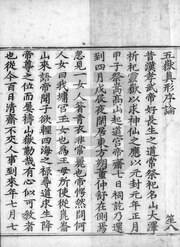 五嶽真形序論
昔漢孝武帝好長生之道常祭祀名山大澤
祈祀靈嶽以求神仙之應以元封元年正月
甲子祭嵩高山起道宮帝齋七日祠訖乃還
到四月戊辰夜閒居東方朔董仲舒在側焉
忽見一女人著青衣非常麗也帝愕然問何
人女曰我墉宮玉女也為王母所使從崑崙
山來語帝聞子欲輕四海之祿尋道求生降
帝尊之位而屢禱山嶽勤哉有心似可教者
也從今百日清齋不交人事到來年七月七
笙八